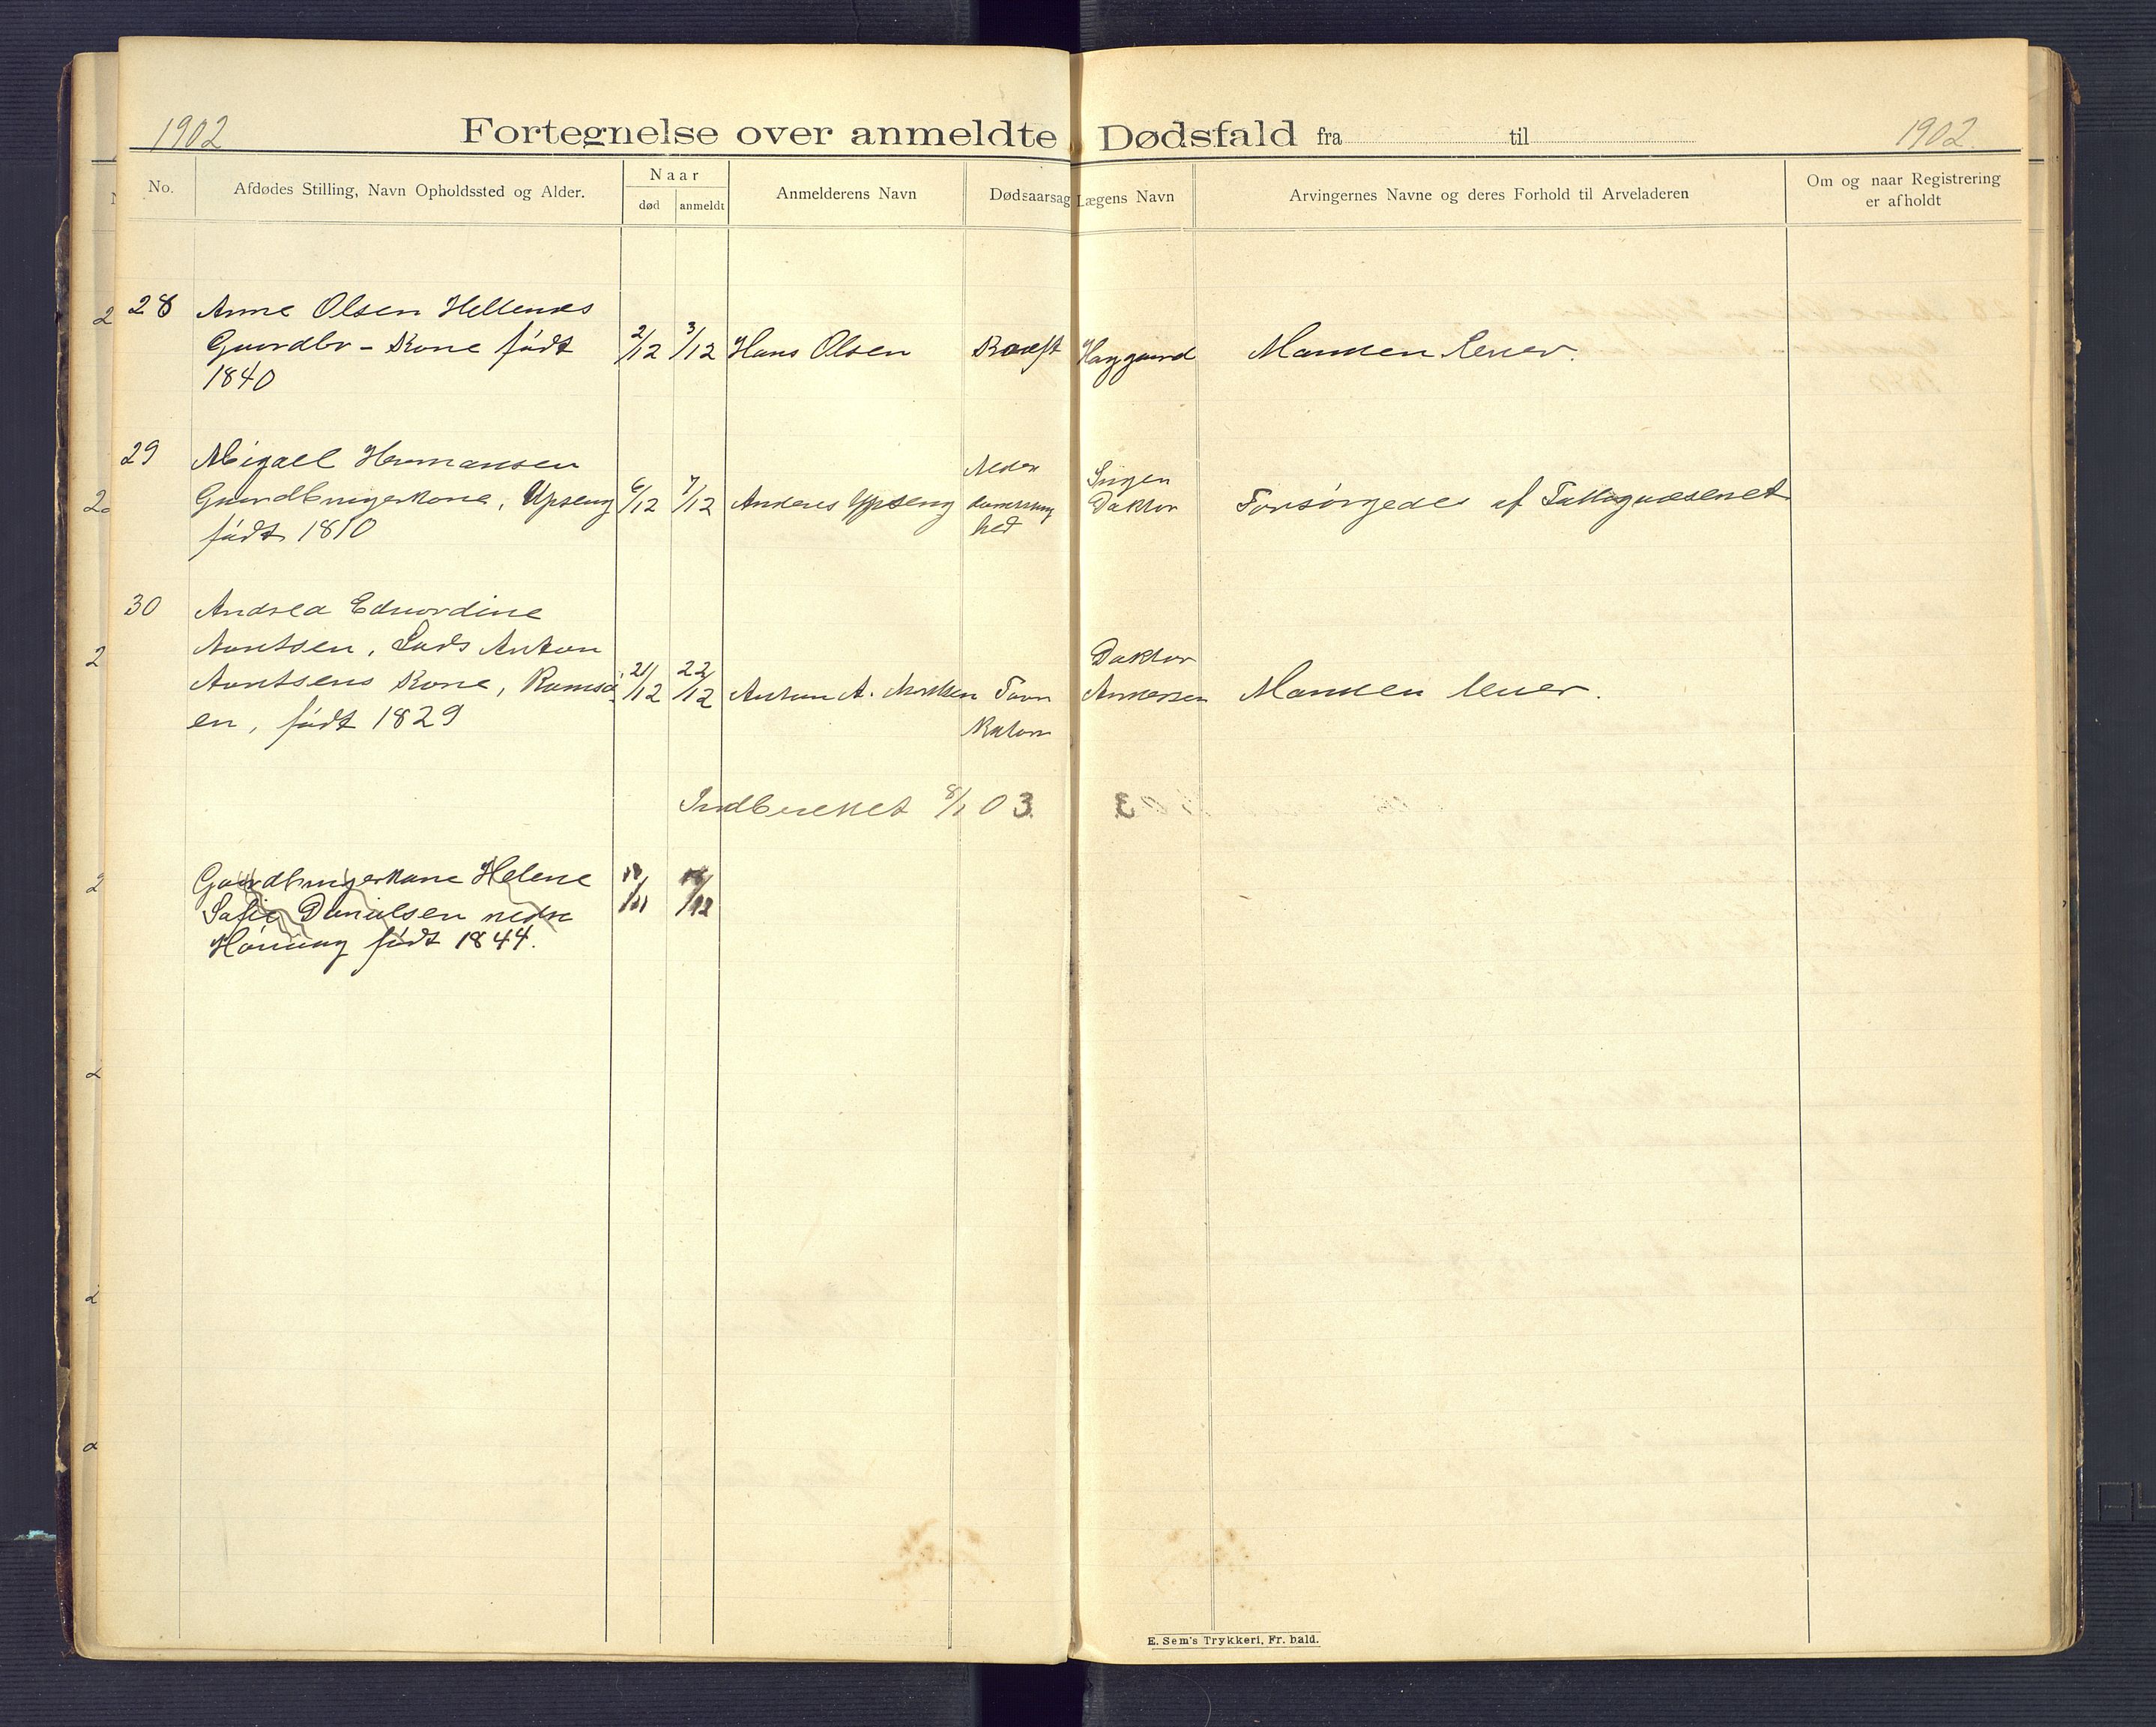 1902
Fortegnelse over anmeldte Dødsfald fra til
1902.
No.
Afdødes Stilling, Navn Opholdssted og Alder.
Naar
død
anmeldt
Anmelderens Navn
Dødsaarsag
Lægens Navn
Arvingernes Navne og deres Forhold til Arveladeren
Om og naar Registrering
er afholdt
28 Anne Olsen Hellenes
Gaardbr - Kone født 2/12 3/12 Hans Olsen Kræft Haggaard Manden lever.
1840
29 Abigael Hermansen
Gaardbrugerkone, Upseng 6/12 7/12 Anderes Upseng Alder domssvag hed Ingen Doktor Forsørgedes af Fattigvæsenet
født 1810
30 Andrea Edvardine
Arntsen, Lars Anton
Arntsens Kone, Ramsaa 21/12 22/12 Anton A. Arntsen Doktor Andersen Manden lever.
en, født 1829
Indberettet 8/1 03.
Gaardbrugerkone Helene
Sofie Danielsen nedre
født 1844.
E. Sem's Trykkeri, Fr. hald.